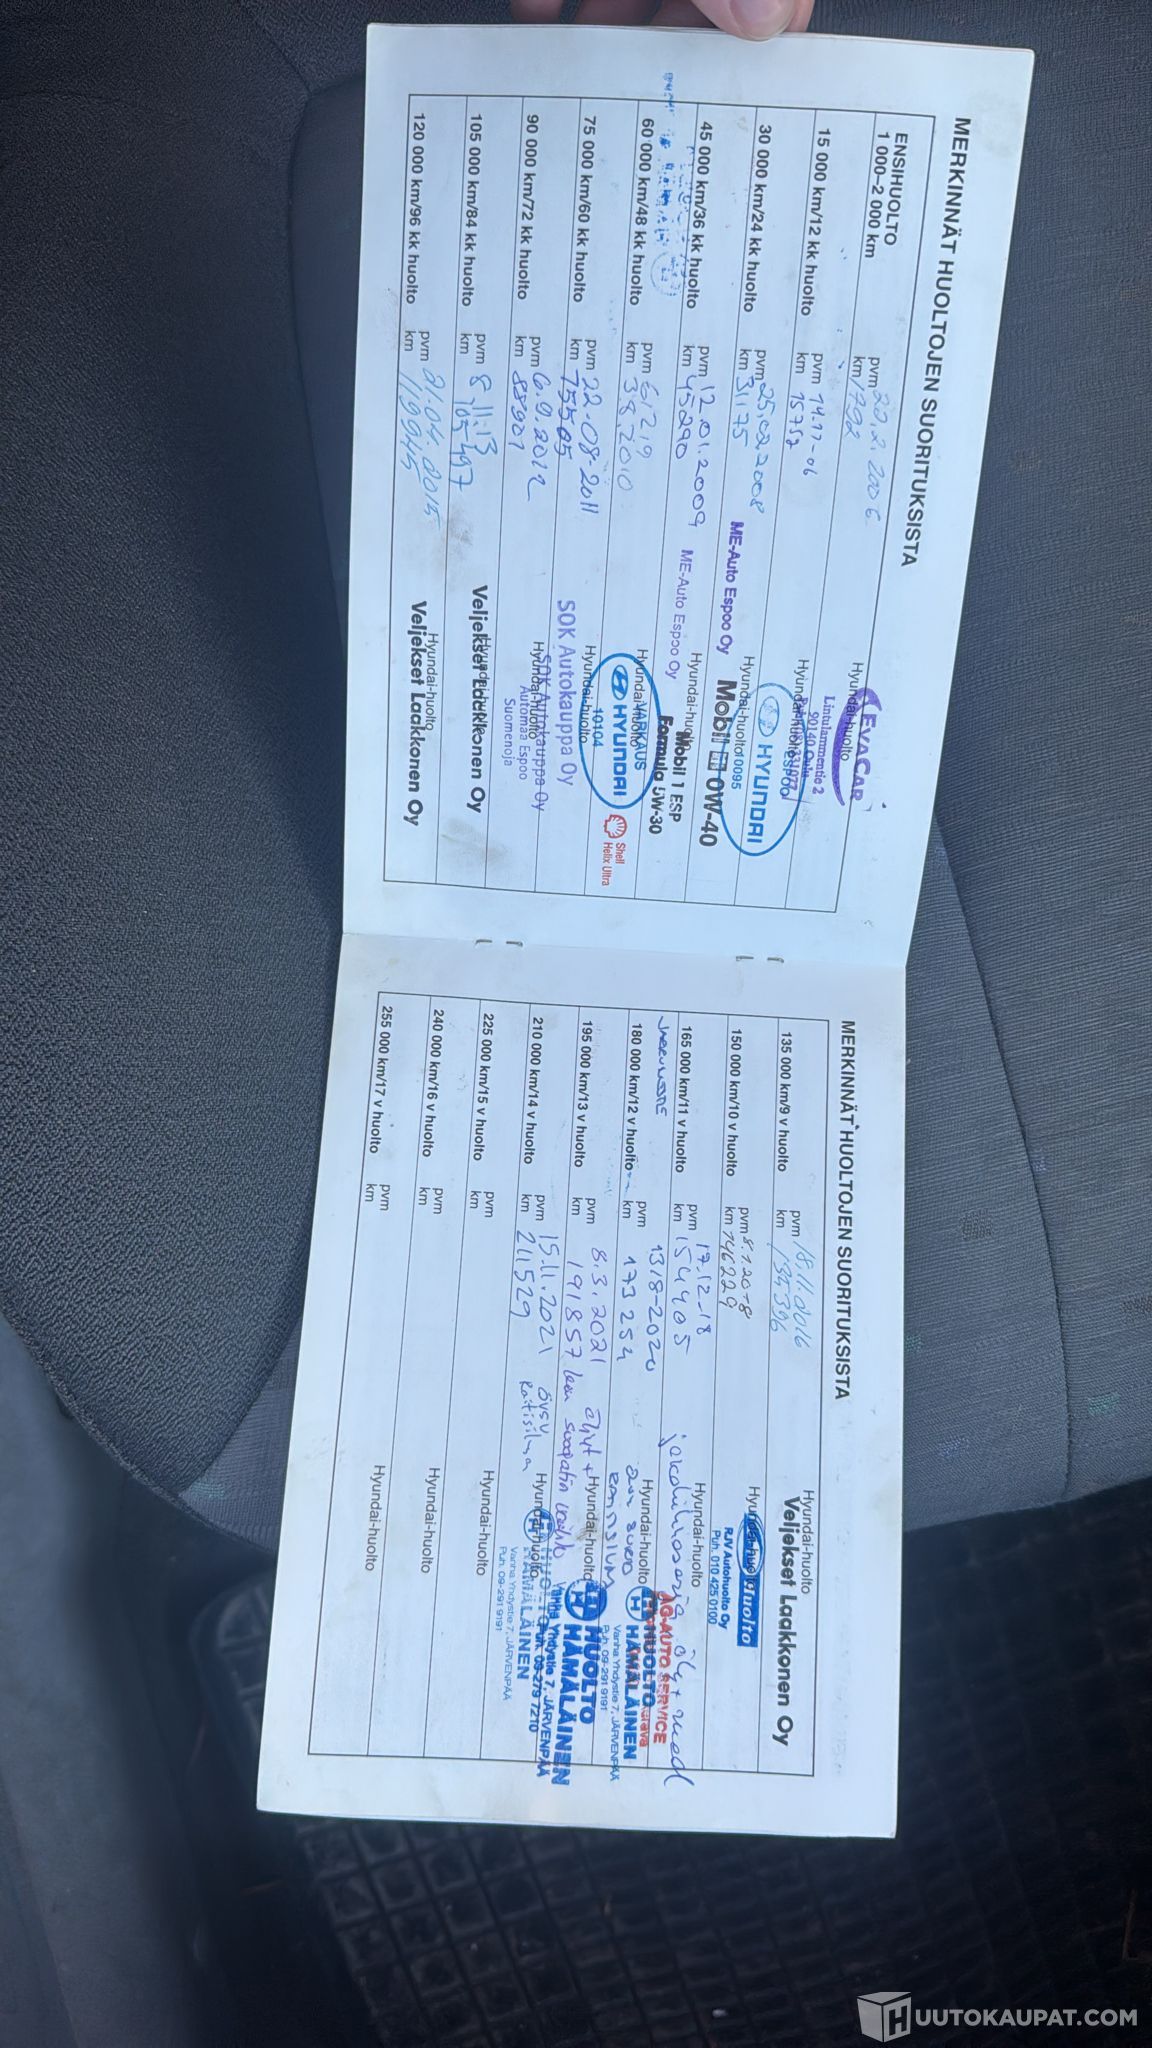 MERKINNÄT HUOLTOJEN SUORITUKSISTA
ENSIHUOLTO
1 000–2 000 km
pvm 22.2.2006
km 1792
Hyundai-huolto
EVACAR
Lintulammentie 2
90140 Oulu
15 000 km/12 kk huolto
pvm 14.11-06
km 15752
Hyundai-huolto
ESPOO
HYUNDAI
10095
30 000 km/24 kk huolto
pvm 25.02.2008
km 31175
Hyundai-huolto
ME-Auto Espoo Oy
Mobil 1 0W-40
45 000 km/36 kk huolto
pvm 12.01.2009
km 45290
Hyundai-huolto
ME-Auto Espoo Oy
Mobil 1 ESP
Formula 5W-30
60 000 km/48 kk huolto
pvm 61219
km 3.8.2010
Hyundai-huolto
VARKAUS
HYUNDAI
10104
Shell
Helix Ultra
75 000 km/60 kk huolto
pvm 22.08-2011
km 75505
Hyundai-huolto
SOK Autokauppa Oy
90 000 km/72 kk huolto
pvm 6.9.2012
km 88901
Hyundai-huolto
SOK Autokauppa Oy
Automaa Espoo
Suomenoja
105 000 km/84 kk huolto
pvm 8.11.13
km 105497
Hyundai-huolto
Veljekset Laakkonen Oy
120 000 km/96 kk huolto
pvm 21.04.2015
km 119945
Hyundai-huolto
Veljekset Laakkonen Oy
MERKINNÄT HUOLTOJEN SUORITUKSISTA
135 000 km/9 v huolto
pvm 18.11.2016
km 135396
Hyundai-huolto
Veljekset Laakkonen Oy
150 000 km/10 v huolto
pvm 8.1.2018
km 146229
Hyundai-huolto
huolto
RJV Autohuolto Oy
Puh. 010 425 0100
165 000 km/11 v huolto
pvm 17.12-18
km 154405
Hyundai-huolto
jakohihnasarja öly +
AG-AUTO SERVICE
180 000 km/12 v huolto
pvm 13/8-2020
km 173 254
Hyundai-huolto
HUOLTO
HÄMÄLÄINEN
Vanha Yhdystie 7, JÄRVENPÄÄ
Puh. 09-291 9191
195 000 km/13 v huolto
pvm 8.3.2021
km 191857
Hyundai-huolto
öljyt +
HUOLTO
HÄMÄLÄINEN
Vanha Yhdystie 7, JÄRVENPÄÄ
Puh. 09-279 7210
210 000 km/14 v huolto
pvm 15.11.2021
km 211529
Hyundai-huolto
HUOLTO
HÄMÄLÄINEN
Vanha Yhdystie 7, JÄRVENPÄÄ
Puh. 09-291 9191
225 000 km/15 v huolto
pvm
km
Hyundai-huolto
240 000 km/16 v huolto
pvm
km
Hyundai-huolto
255 000 km/17 v huolto
pvm
km
Hyundai-huolto
HUUTOKAUPAT.COM